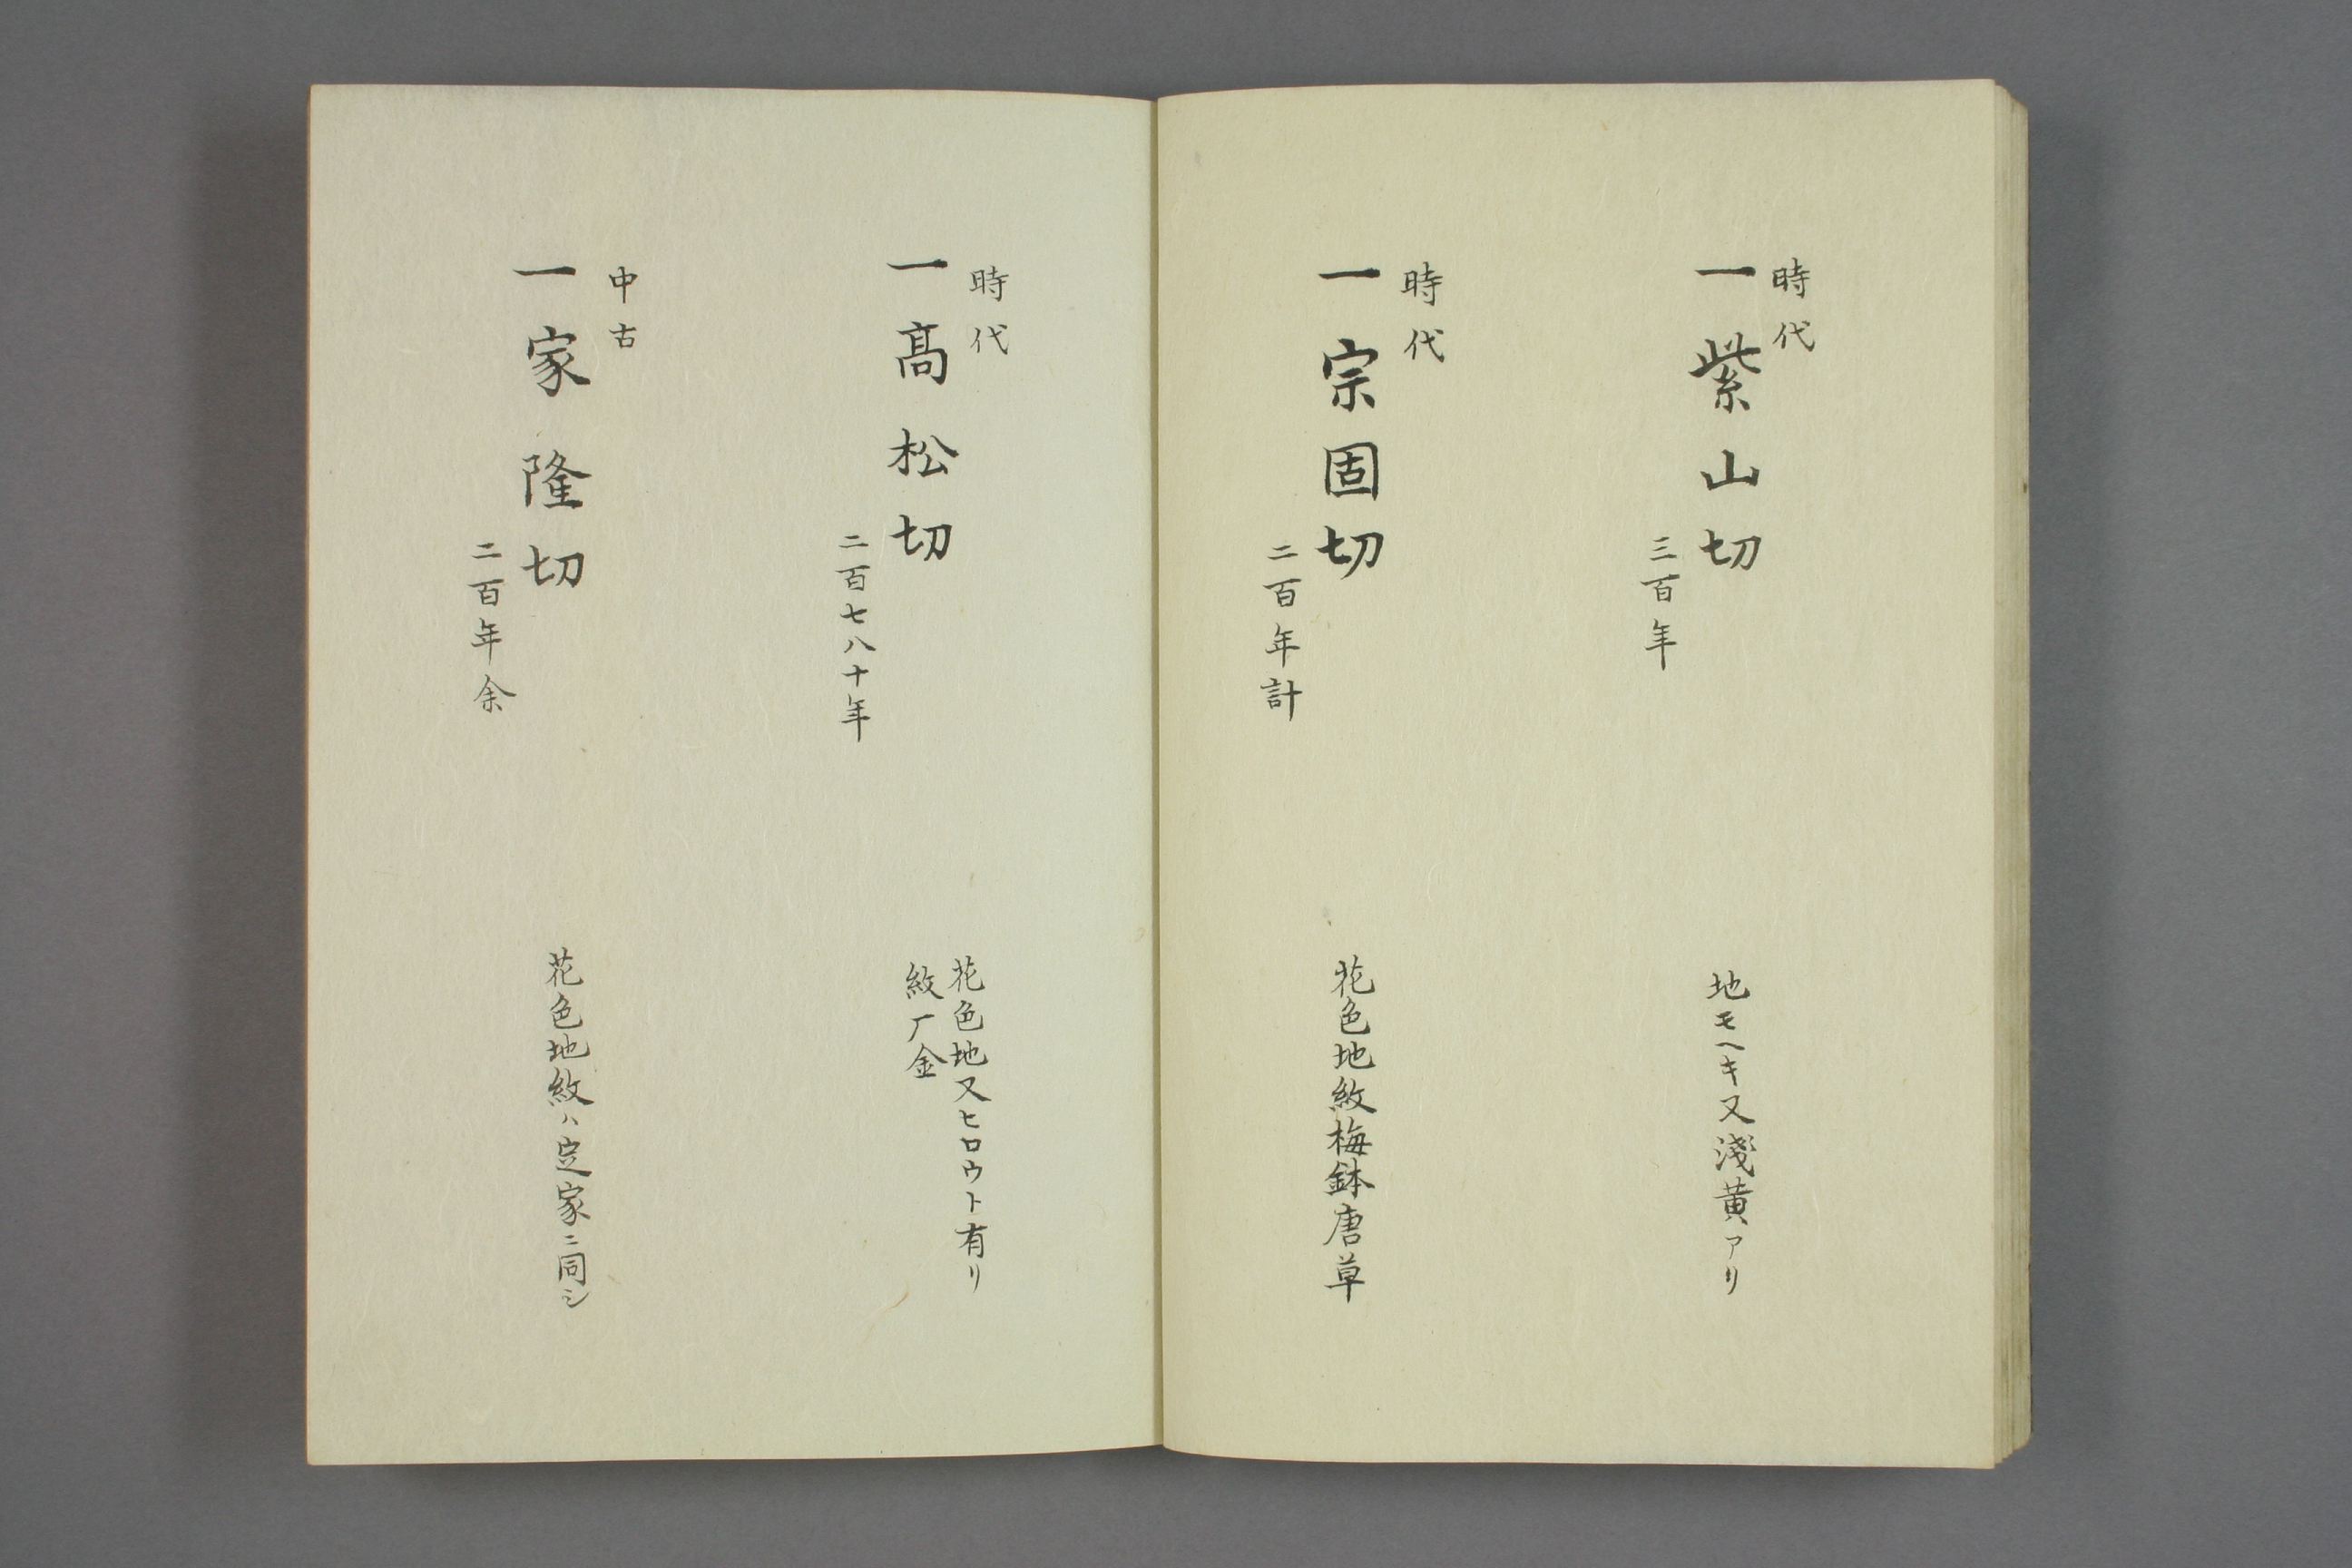 時代
一紫山切
三百年
地モヘキ又淺黄アリ
時代
一宗固切
二百年計
花色地紋梅鉢唐草
時代
一髙松切
二百七八十年
花色地又ヒロウト有リ
紋厂金
中古
一家隆切
二百年余
花色地紋ハ定家ニ同シ